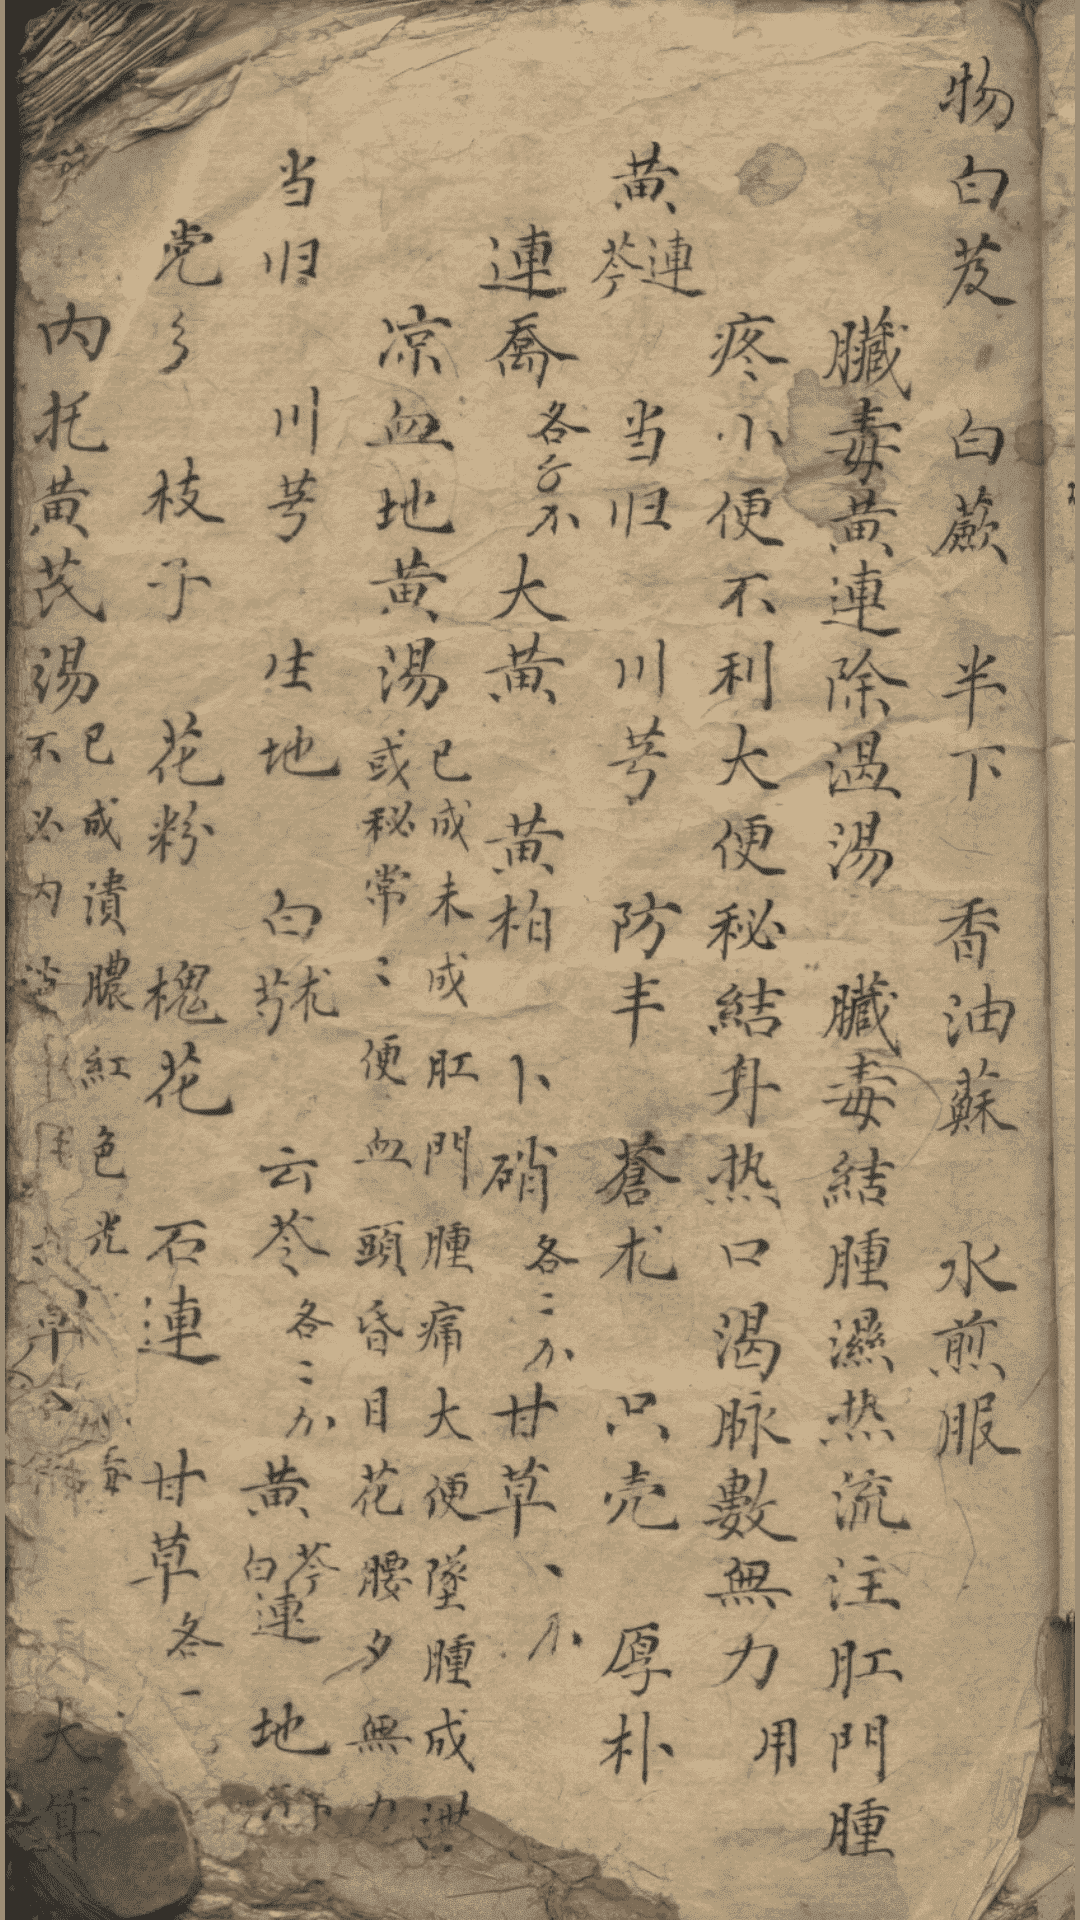 物白芨 白蔹 半下 香油蘇 水煎服
臟毒黃連除濕湯 臟毒結腫濕热流注肛門腫
疼小便不利大便秘結身热口渴脉數無力 用
黃連芩 当归 川芎 防丰 蒼朮 只壳 厚朴
連喬各 大黃 黃柏 卜硝各二 甘草
凉血地黃湯
已成未成肛門腫痛大便墜腫成
或秘常〻便血頭昏目花腰夕無力
当归 川芎 生地 白朮芍 云苓各二 黃芩連白 地
党 枝子 花粉 槐花 石連 甘草各一
内托黃芪湯
已成潰膿紅色光
不必内
大